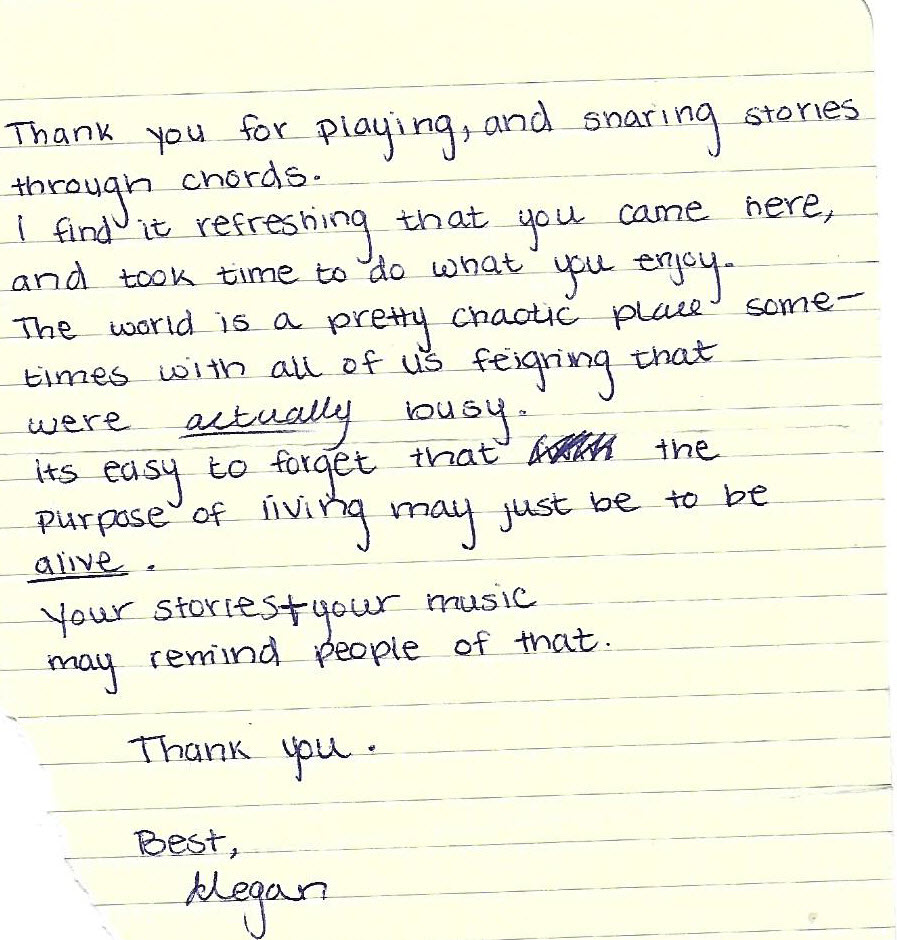 Thank you for playing, and sharing stories
through chords.
I find it refreshing that you came here,
and took time to do what you enjoy.
The world is a pretty chaotic place some-
times with all of us feigning that
were actually busy.
its easy to forget that the
purpose of living may just be to be
alive.
Your stories + your music
may remind people of that.
Thank you.
Best,
Megan